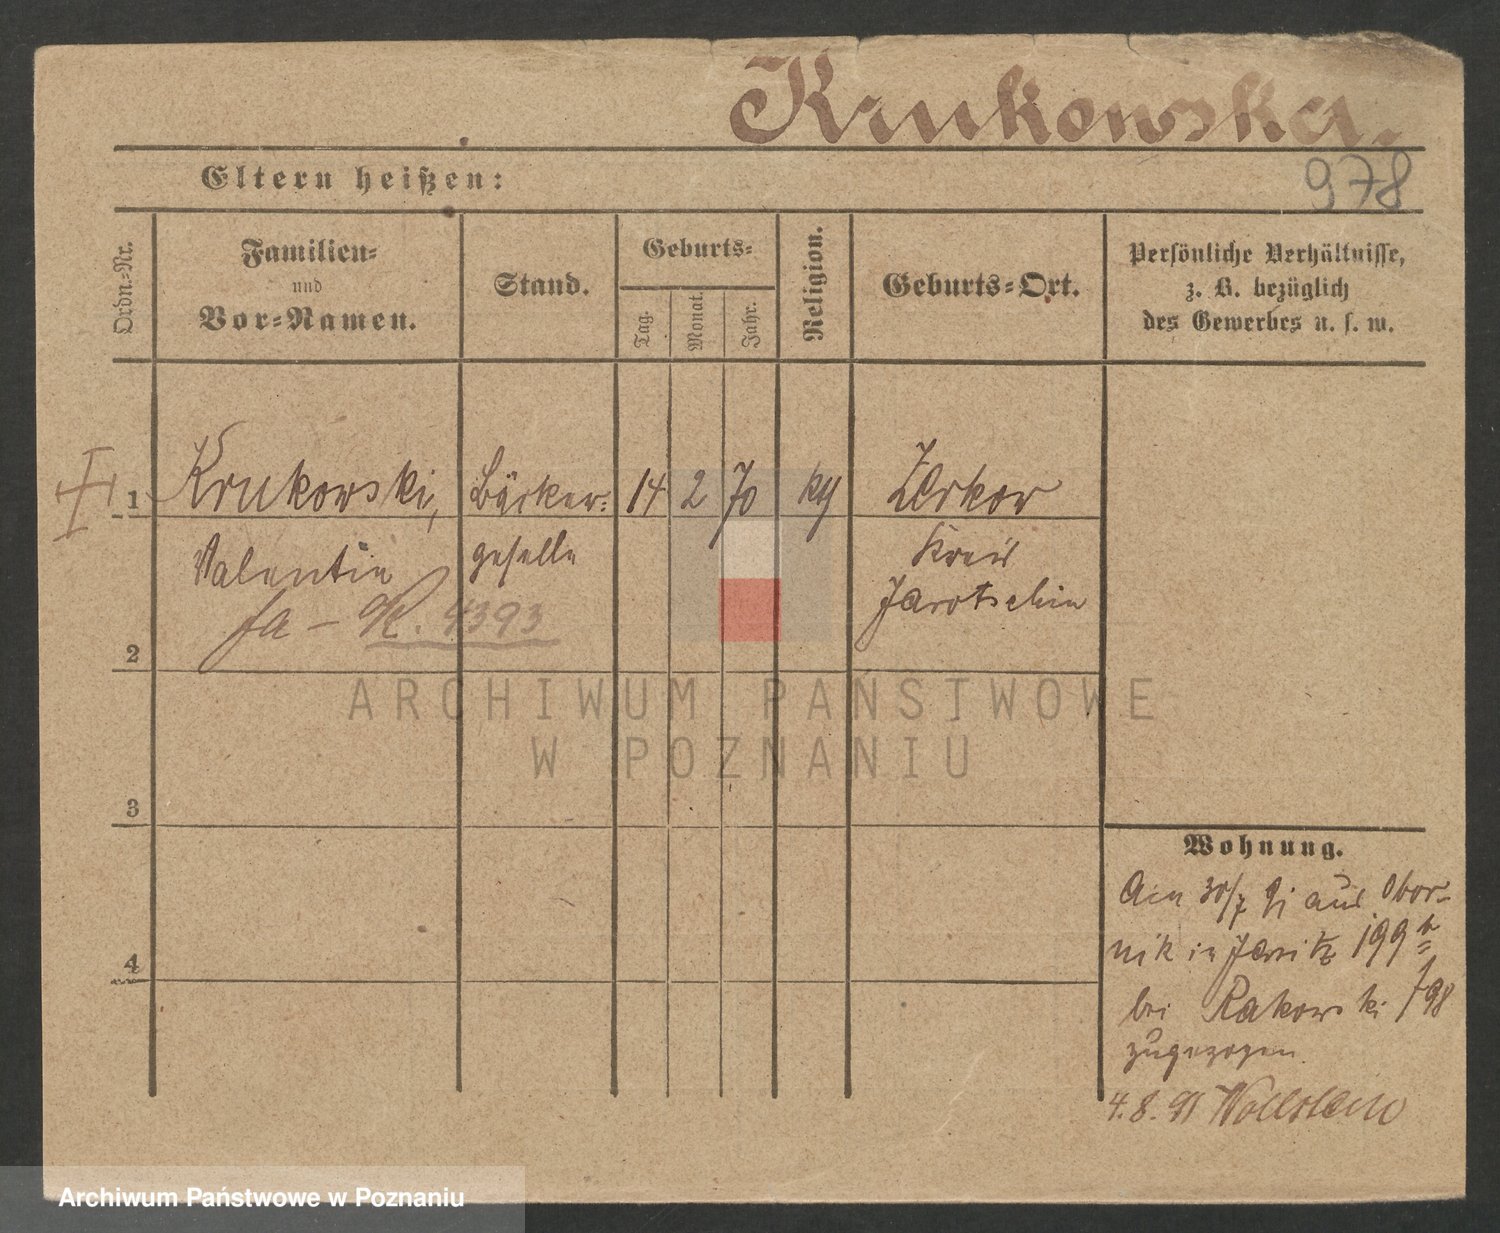 Krukowska.
978
Eltern heißen:
Ordn.-Nr.
Familien-
und
Vor-Namen.
Stand.
Geburts-
Tag.
Monat.
Jahr.
Religion.
Geburts-Ort.
Persönliche Verhältnisse,
z. B. bezüglich
des Gewerbes u. s. w.
1 Krukowski, Bäcker- 14 2 70 kth Zerkow
Valentin geselle Kreis
Jarotschin
fa - R. 4393
2
ARCHIWUM PAŃSTWOWE
W POZNANIU
3
Wohnung.
Am 30/7 91 aus Obor-
nik in Jersitz 199
4
bei Rakowski 798
zugezogen
4.8.91 Wollstein
Archiwum Państwowe w Poznaniu